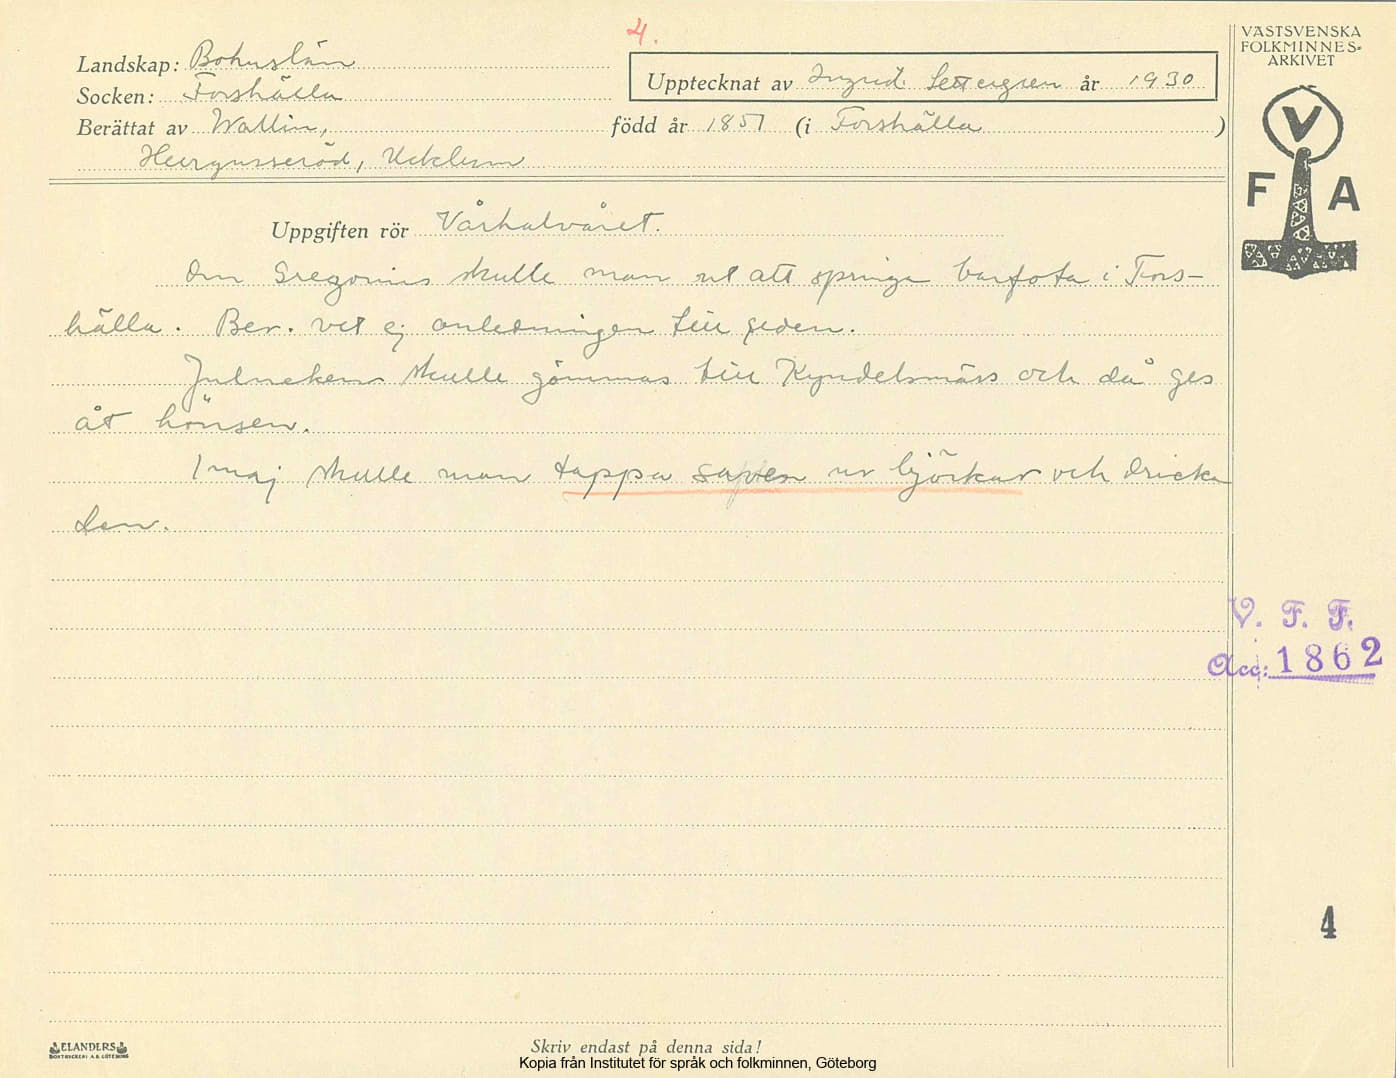 4.
VÄSTSVENSKA
FOLKMINNES-
ARKIVET
Landskap: Bohuslän
Upptecknat av Ingrid Settergren år 1930
Socken: Forshälla
Berättat av Wallin, född år 1851 (i Forshälla)
Ucklum
V
F A
Uppgiften rör Vårhalvåret.
Om Gregorius skulle man ut att springa barfota i Fors-
hälla. Ber. vet ej anledningen till seden.
Julneken skulle gömmas till Kyndelsmäss och då ges
åt hönsen.
I maj skulle man tappa saften ur björkar och dricka
den.
V. F. F.
Acc: 1862
4
ELANDERS
BOKTRYCKERI A.B. GÖTEBORG
Skriv endast på denna sida!
Kopia från Institutet för språk och folkminnen, Göteborg